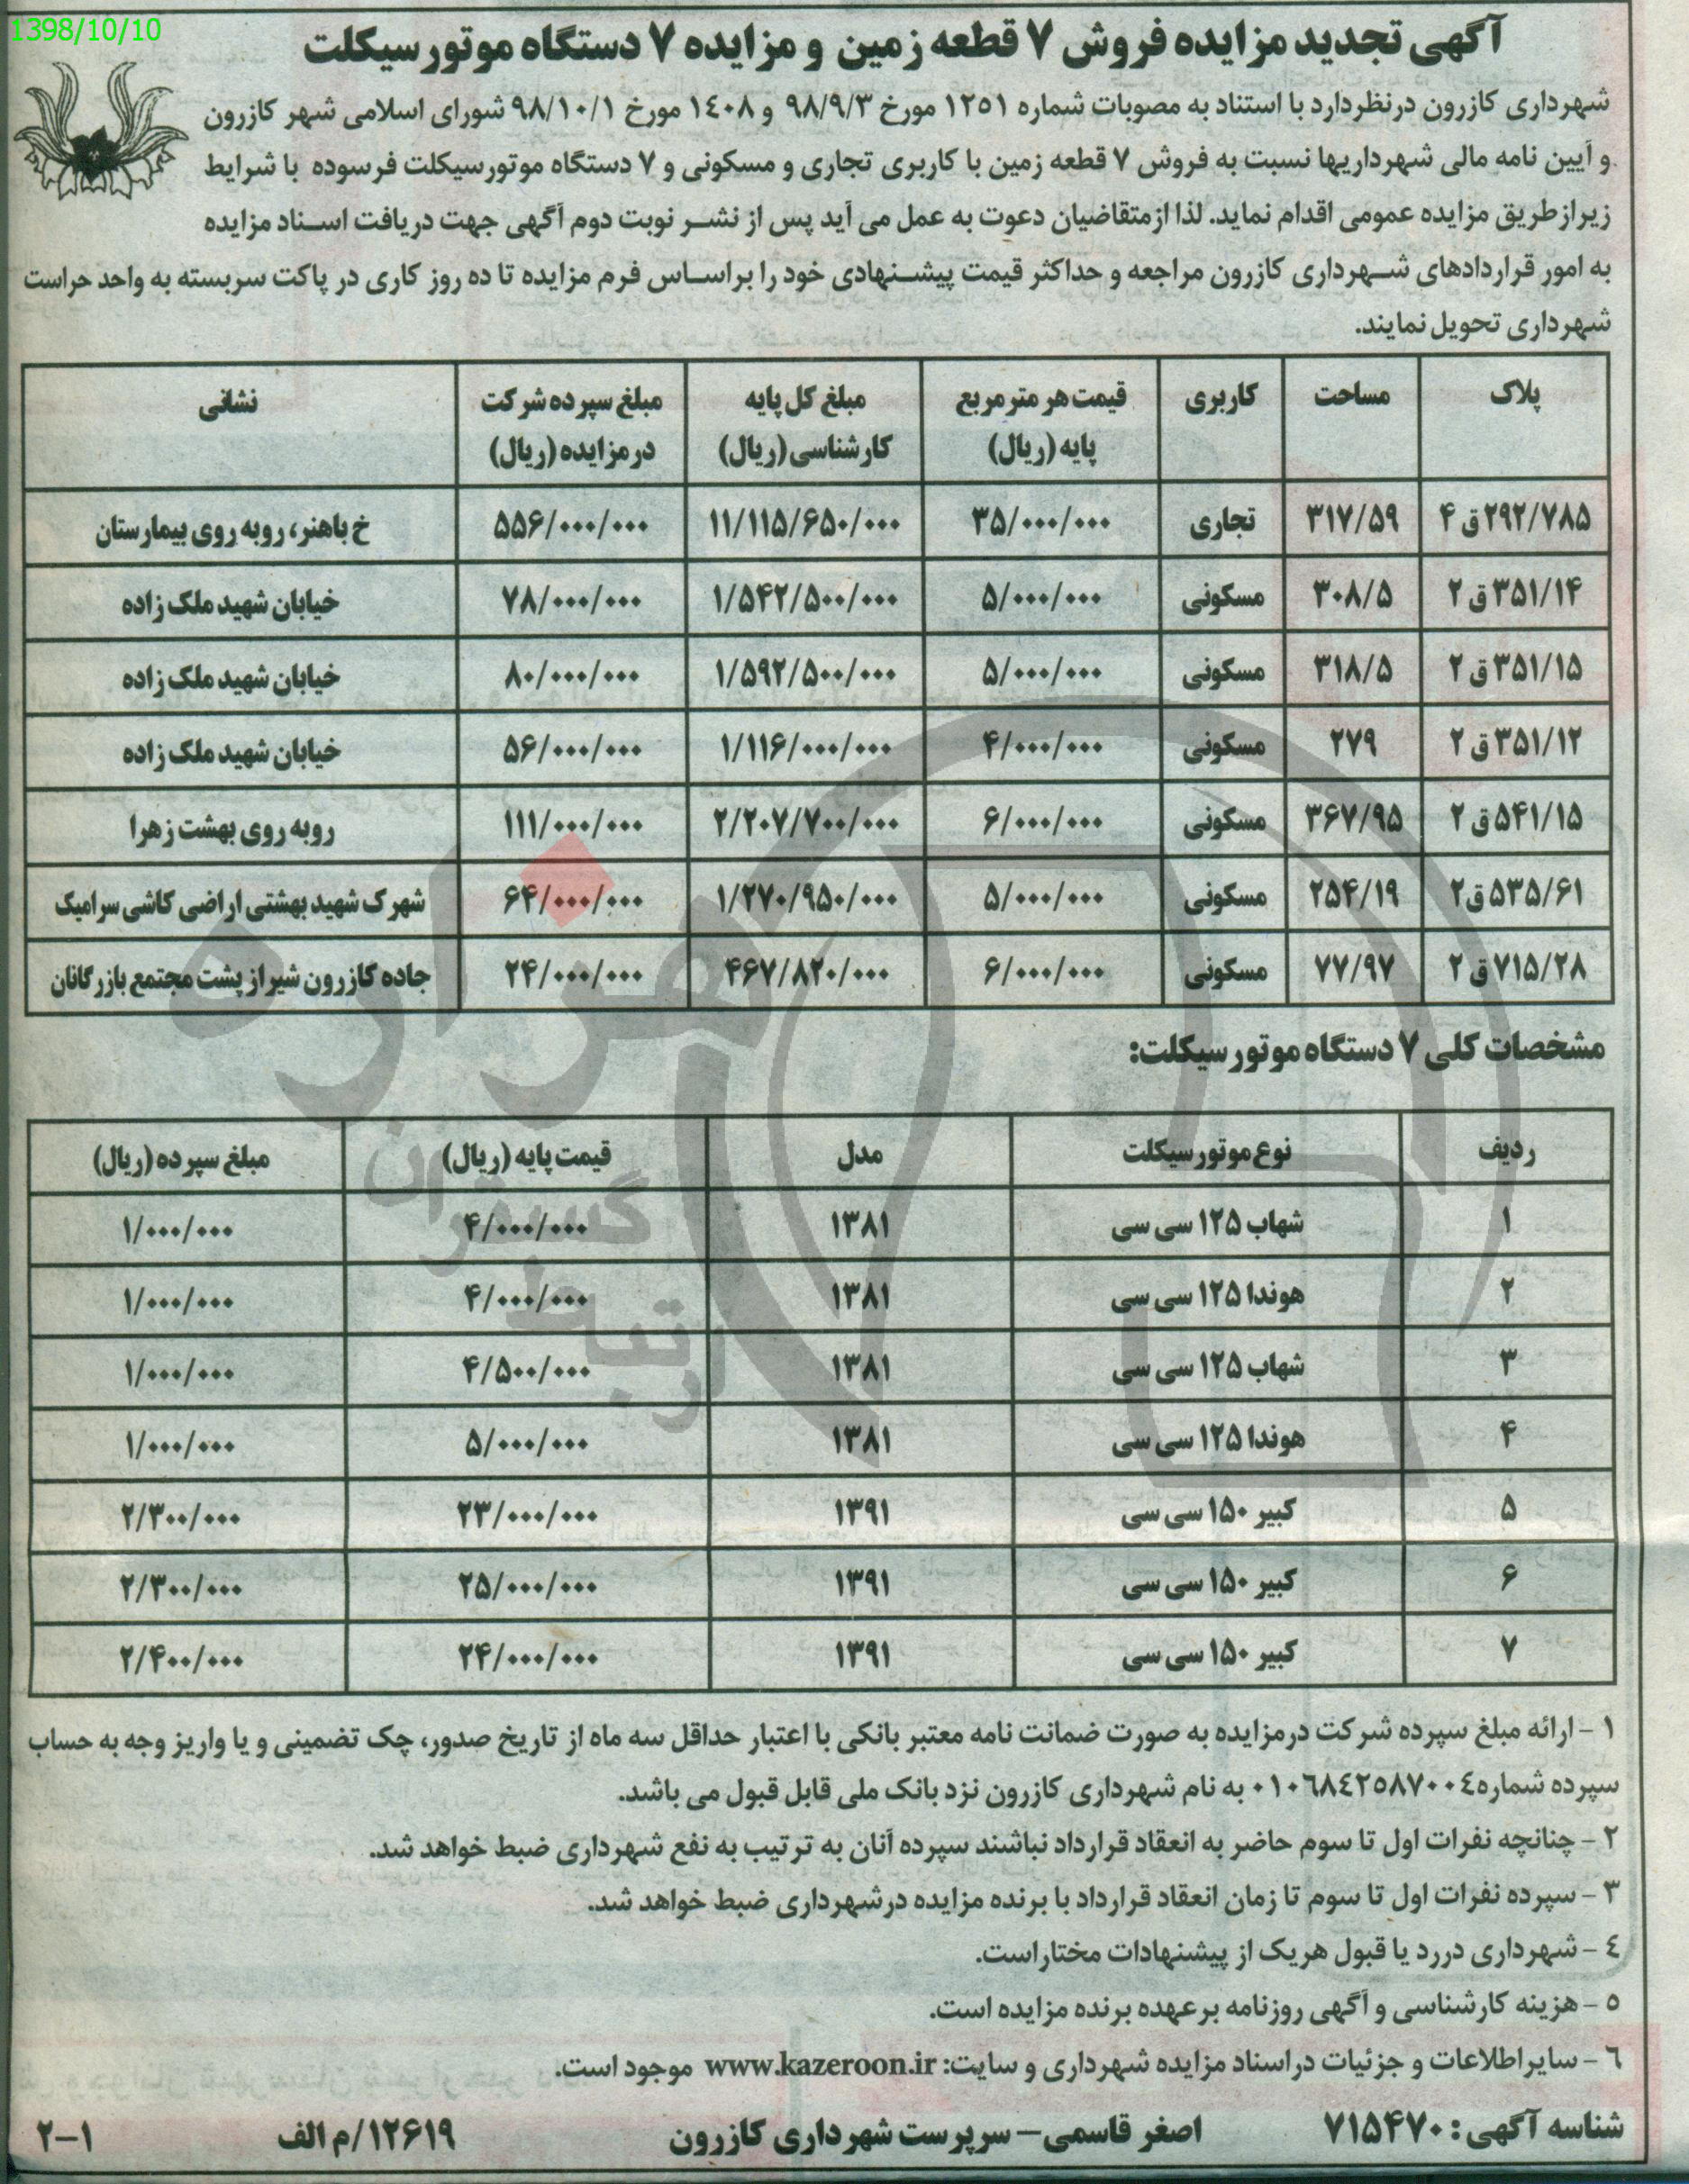 1398/10/10
آگهی تجدید مزایده فروش ۷ قطعه زمین و مزایده ۷ دستگاه موتورسیکلت
شهرداری کازرون درنظردارد با استناد به مصوبات شماره ۱۲۵۱ مورخ ۹۸/۹/۳ و ۱۴۰۸ مورخ ۹۸/۱۰/۱ شورای اسلامی شهر کازرون
و آیین نامه مالی شهرداریها نسبت به فروش ۷ قطعه زمین با کاربری تجاری و مسکونی و ۷ دستگاه موتورسیکلت فرسوده با شرایط
زیرازطریق مزایده عمومی اقدام نماید. لذا ازمتقاضیان دعوت به عمل می آید پس از نشر نوبت دوم آگهی جهت دریافت اسناد مزایده
به امور قراردادهای شهرداری کازرون مراجعه و حداکثر قیمت پیشنهادی خود را براساس فرم مزایده تا ده روز کاری در پاکت سربسته به واحد حراست
شهرداری تحویل نمایند.
پلاک مساحت کاربری قیمت هر مترمربع پایه (ریال) مبلغ کل پایه کارشناسی (ریال) مبلغ سپرده شرکت درمزایده (ریال) نشانی
۲۹۲/۷۸۵ ق ۴ ۳۱۷/۵۹ تجاری ۳۵/۰۰۰/۰۰۰ ۱۱/۱۱۵/۶۵۰/۰۰۰ ۵۵۶/۰۰۰/۰۰۰ خ باهنر، روبه روی بیمارستان
۳۵۱/۱۴ ق ۲ ۳۰۸/۵ مسکونی ۵/۰۰۰/۰۰۰ ۱/۵۴۲/۵۰۰/۰۰۰ ۷۸/۰۰۰/۰۰۰ خیابان شهید ملک زاده
۳۵۱/۱۵ ق ۲ ۳۱۸/۵ مسکونی ۵/۰۰۰/۰۰۰ ۱/۵۹۲/۵۰۰/۰۰۰ ۸۰/۰۰۰/۰۰۰ خیابان شهید ملک زاده
۳۵۱/۱۲ ق ۲ ۲۷۹ مسکونی ۴/۰۰۰/۰۰۰ ۱/۱۱۶/۰۰۰/۰۰۰ ۵۶/۰۰۰/۰۰۰ خیابان شهید ملک زاده
۵۴۱/۱۵ ق ۲ ۳۶۷/۹۵ مسکونی ۶/۰۰۰/۰۰۰ ۲/۲۰۷/۷۰۰/۰۰۰ ۱۱۱/۰۰۰/۰۰۰ روبه روی بهشت زهرا
۵۳۵/۶۱ ق۲ ۲۵۴/۱۹ مسکونی ۵/۰۰۰/۰۰۰ ۱/۲۷۰/۹۵۰/۰۰۰ ۶۴/۰۰۰/۰۰۰ شهرک شهید بهشتی اراضی کاشی سرامیک
۷۱۵/۲۸ ق ۲ ۷۷/۹۷ مسکونی ۶/۰۰۰/۰۰۰ ۴۶۷/۸۲۰/۰۰۰ ۲۴/۰۰۰/۰۰۰ جاده کازرون شیراز پشت مجتمع بازرگانان
مشخصات کلی ۷ دستگاه موتورسیکلت:
ردیف نوع موتورسیکلت مدل قیمت پایه (ریال) مبلغ سپرده (ریال)
۱ شهاب ۱۲۵ سی سی ۱۳۸۱ ۴/۰۰۰/۰۰۰ ۱/۰۰۰/۰۰۰
۲ هوندا ۱۲۵ سی سی ۱۳۸۱ ۴/۰۰۰/۰۰۰ ۱/۰۰۰/۰۰۰
۳ شهاب ۱۲۵ سی سی ۱۳۸۱ ۴/۵۰۰/۰۰۰ ۱/۰۰۰/۰۰۰
۴ هوندا ۱۲۵ سی سی ۱۳۸۱ ۵/۰۰۰/۰۰۰ ۱/۰۰۰/۰۰۰
۵ کبیر ۱۵۰ سی سی ۱۳۹۱ ۲۳/۰۰۰/۰۰۰ ۲/۳۰۰/۰۰۰
۶ کبیر ۱۵۰ سی سی ۱۳۹۱ ۲۵/۰۰۰/۰۰۰ ۲/۳۰۰/۰۰۰
۷ کبیر ۱۵۰ سی سی ۱۳۹۱ ۲۴/۰۰۰/۰۰۰ ۲/۴۰۰/۰۰۰
هزاره
گستران
ارتباط
۱ - ارائه مبلغ سپرده شرکت درمزایده به صورت ضمانت نامه معتبر بانکی با اعتبار حداقل سه ماه از تاریخ صدور، چک تضمینی و یا واریز وجه به حساب
سپرده شماره۰۱۰۶۸۴۲۵۸۷۰۰۴ به نام شهرداری کازرون نزد بانک ملی قابل قبول می باشد.
۲ - چنانچه نفرات اول تا سوم حاضر به انعقاد قرارداد نباشند سپرده آنان به ترتیب به نفع شهرداری ضبط خواهد شد.
۳ - سپرده نفرات اول تا سوم تا زمان انعقاد قرارداد با برنده مزایده درشهرداری ضبط خواهد شد.
۴ - شهرداری دررد یا قبول هریک از پیشنهادات مختاراست.
۵ - هزینه کارشناسی و آگهی روزنامه برعهده برنده مزایده است.
۶ - سایراطلاعات و جزئیات دراسناد مزایده شهرداری و سایت: www.kazeroon.ir موجود است.
شناسه آگهی: ۷۱۵۴۷۰ اصغر قاسمی– سرپرست شهرداری کازرون ۱۲۶۱۹/م الف ۲–۱